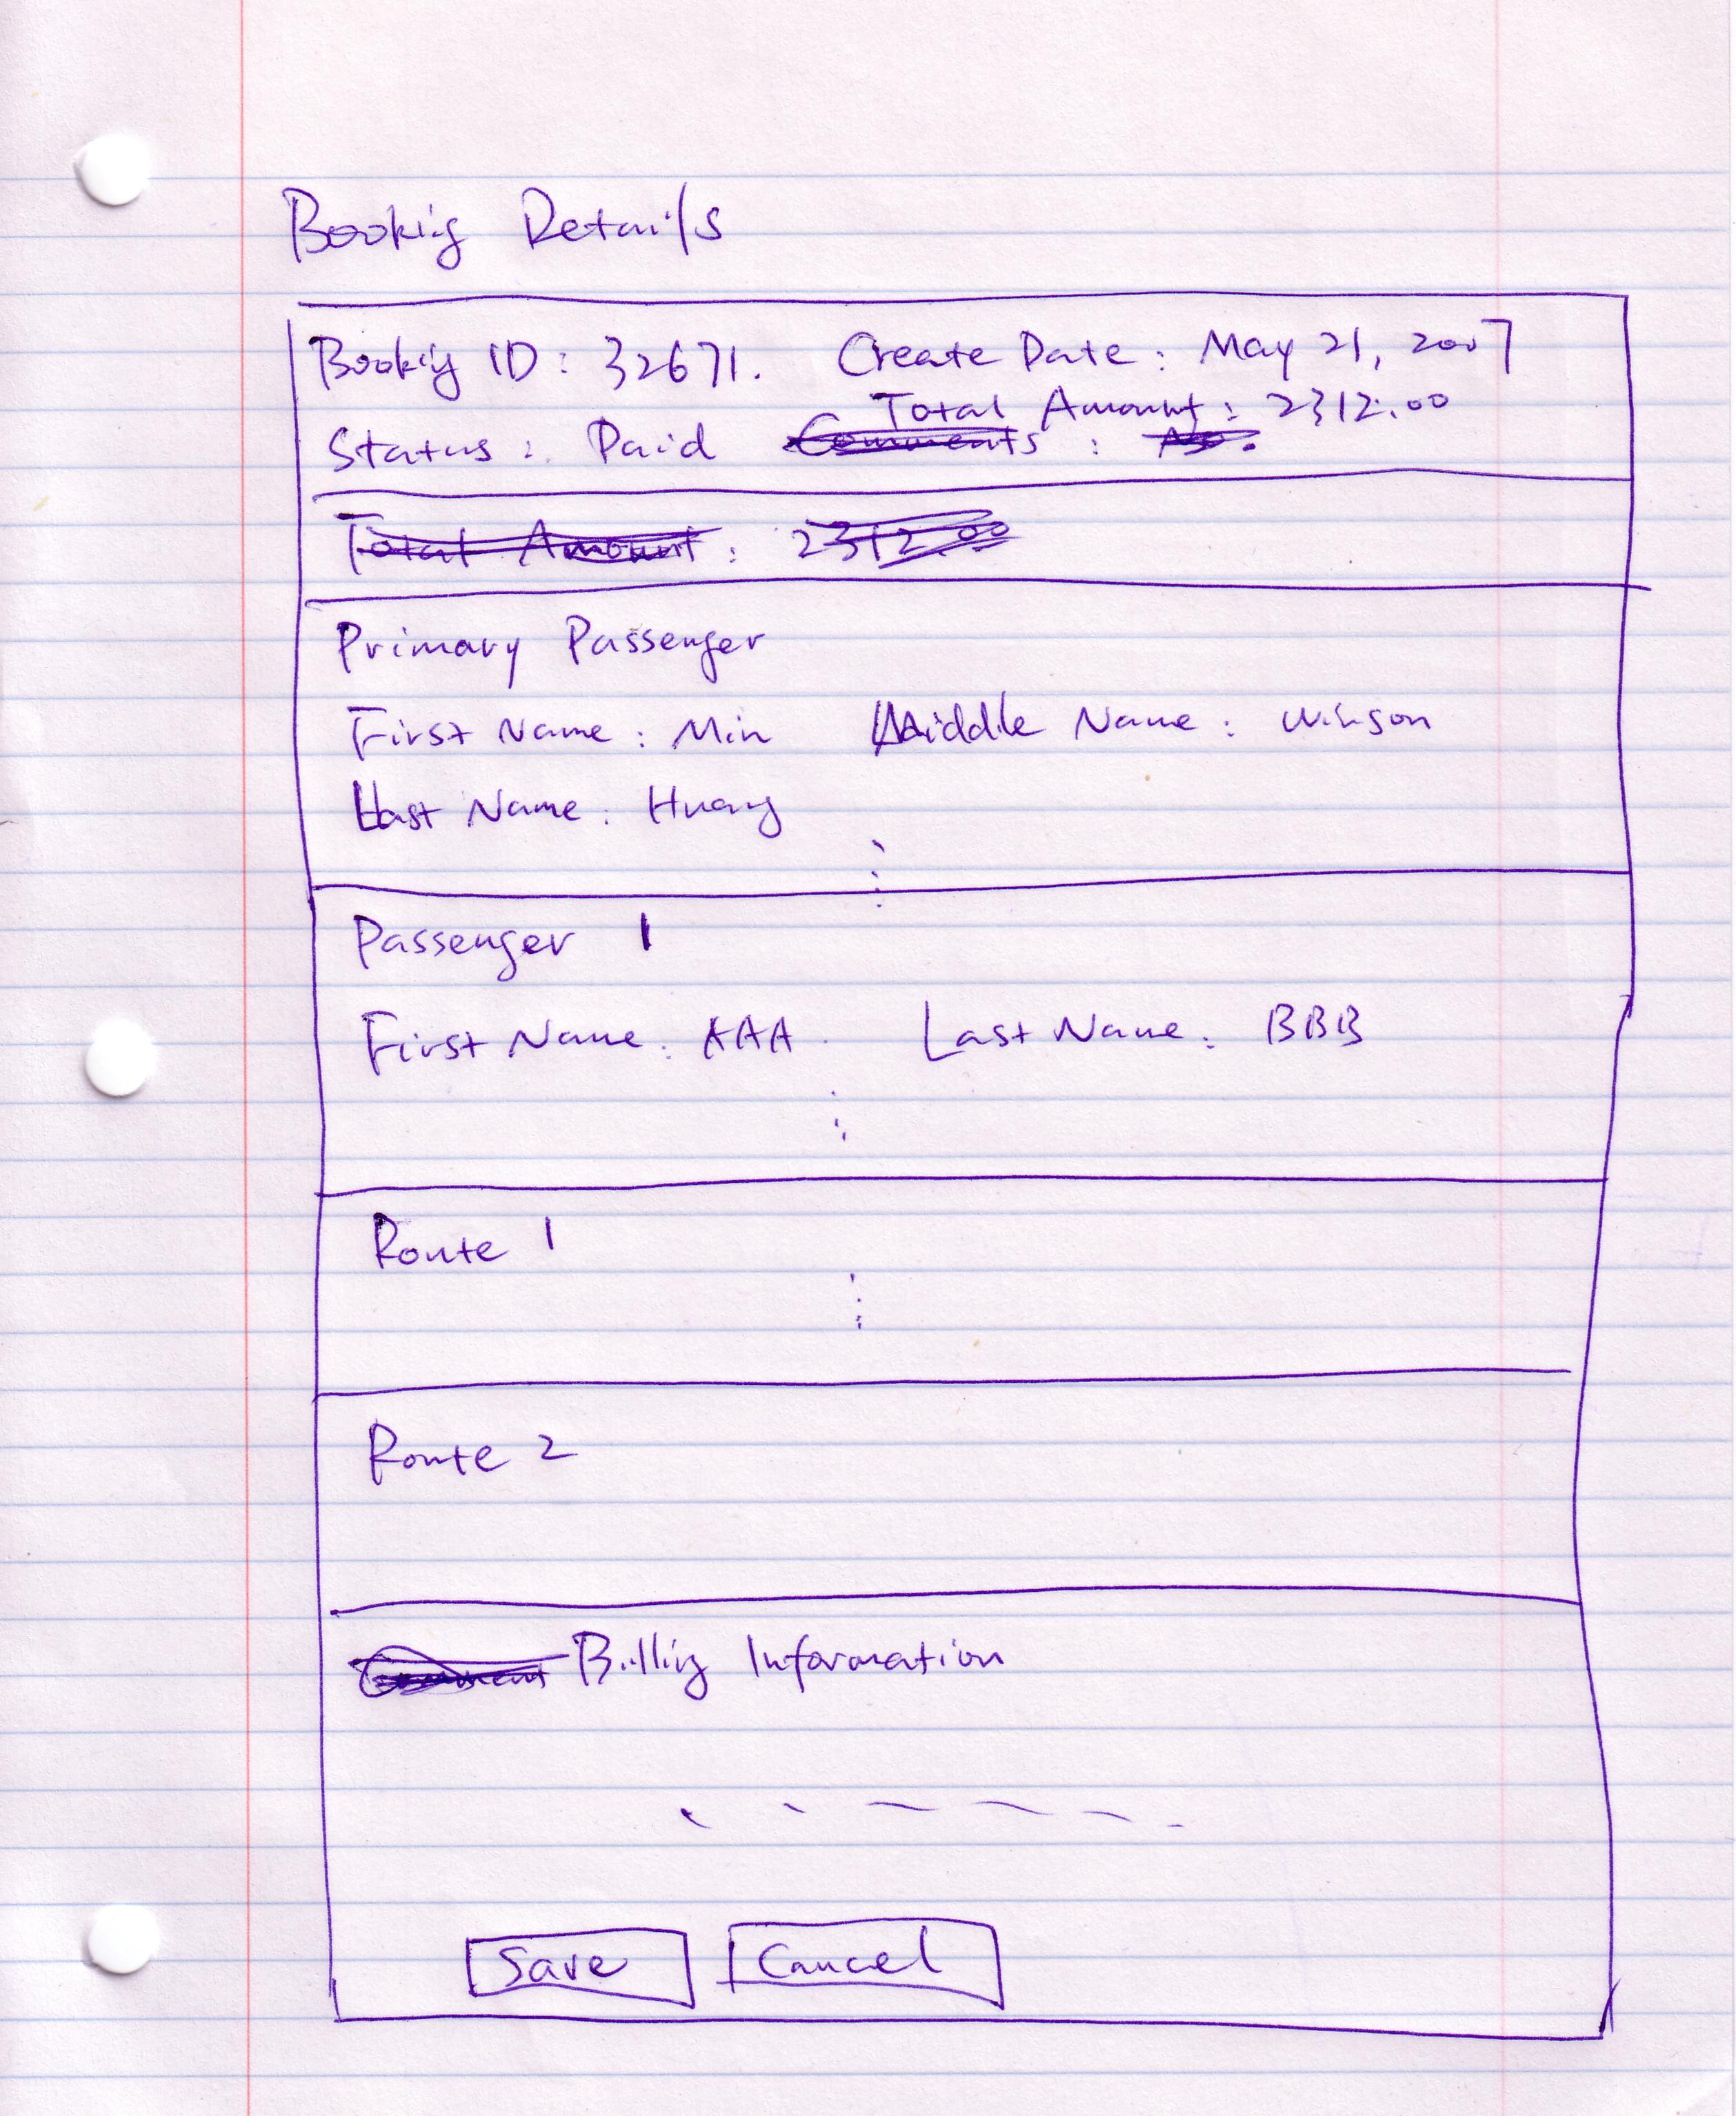 Booking Details
Booking ID: 32671. Create Date: May 21, 2007
Total Amount: 2312.00
Status: Paid Comments :
Total Amount: 2312.00
Primary Passenger
First Name: Min Middle Name: Winson
Last Name: Huang
Passenger 1
First Name: AAA Last Name: BBB
Route 1
Route 2
Comment Billing Information
Save Cancel